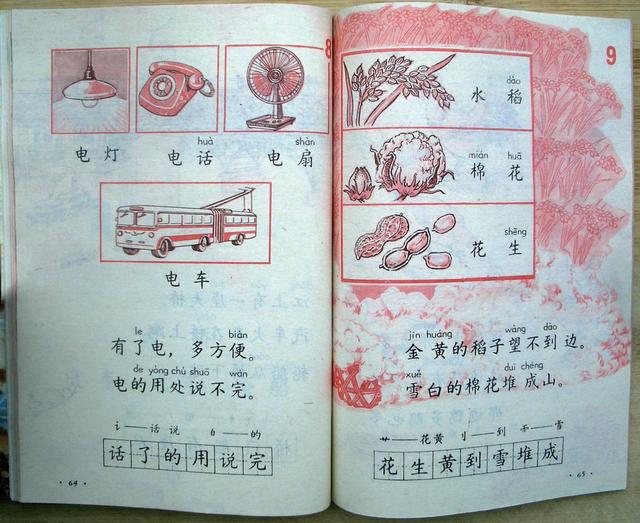 8
huà shàn
电灯 电话 电扇
电车
le biàn
有了电，多方便。
de yòng chù shuō wán
电的用处说不完。
讠——话说 白——的
话了的用说完
· 64 ·
9
dào
水稻
mián huā
棉花
shēng
花生
jīn huáng wàng dào
金黄的稻子望不到边。
xuě duī chéng
雪白的棉花堆成山。
艹——花黄 刂——到 ⻗——雪
花生黄到雪堆成
· 65 ·